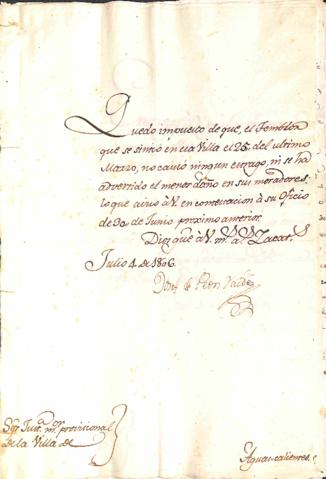 Quedo impuesto de que, el Temblor
que se sintio en esa Villa el 25 del ultimo
Marzo, no causó ningun estrago, ni se ha
advertido el menor daño en sus moradores:
lo que aviso à V. en contestacion à su Oficio
de 30 de Junio proximo anterior.
Dios gue à V. m.s a.s Zacat.s
Julio 4 de 1806.
de Peon Valdes
Sõr Just.a m.or provisional
de la Villa de
Aguascalientes.